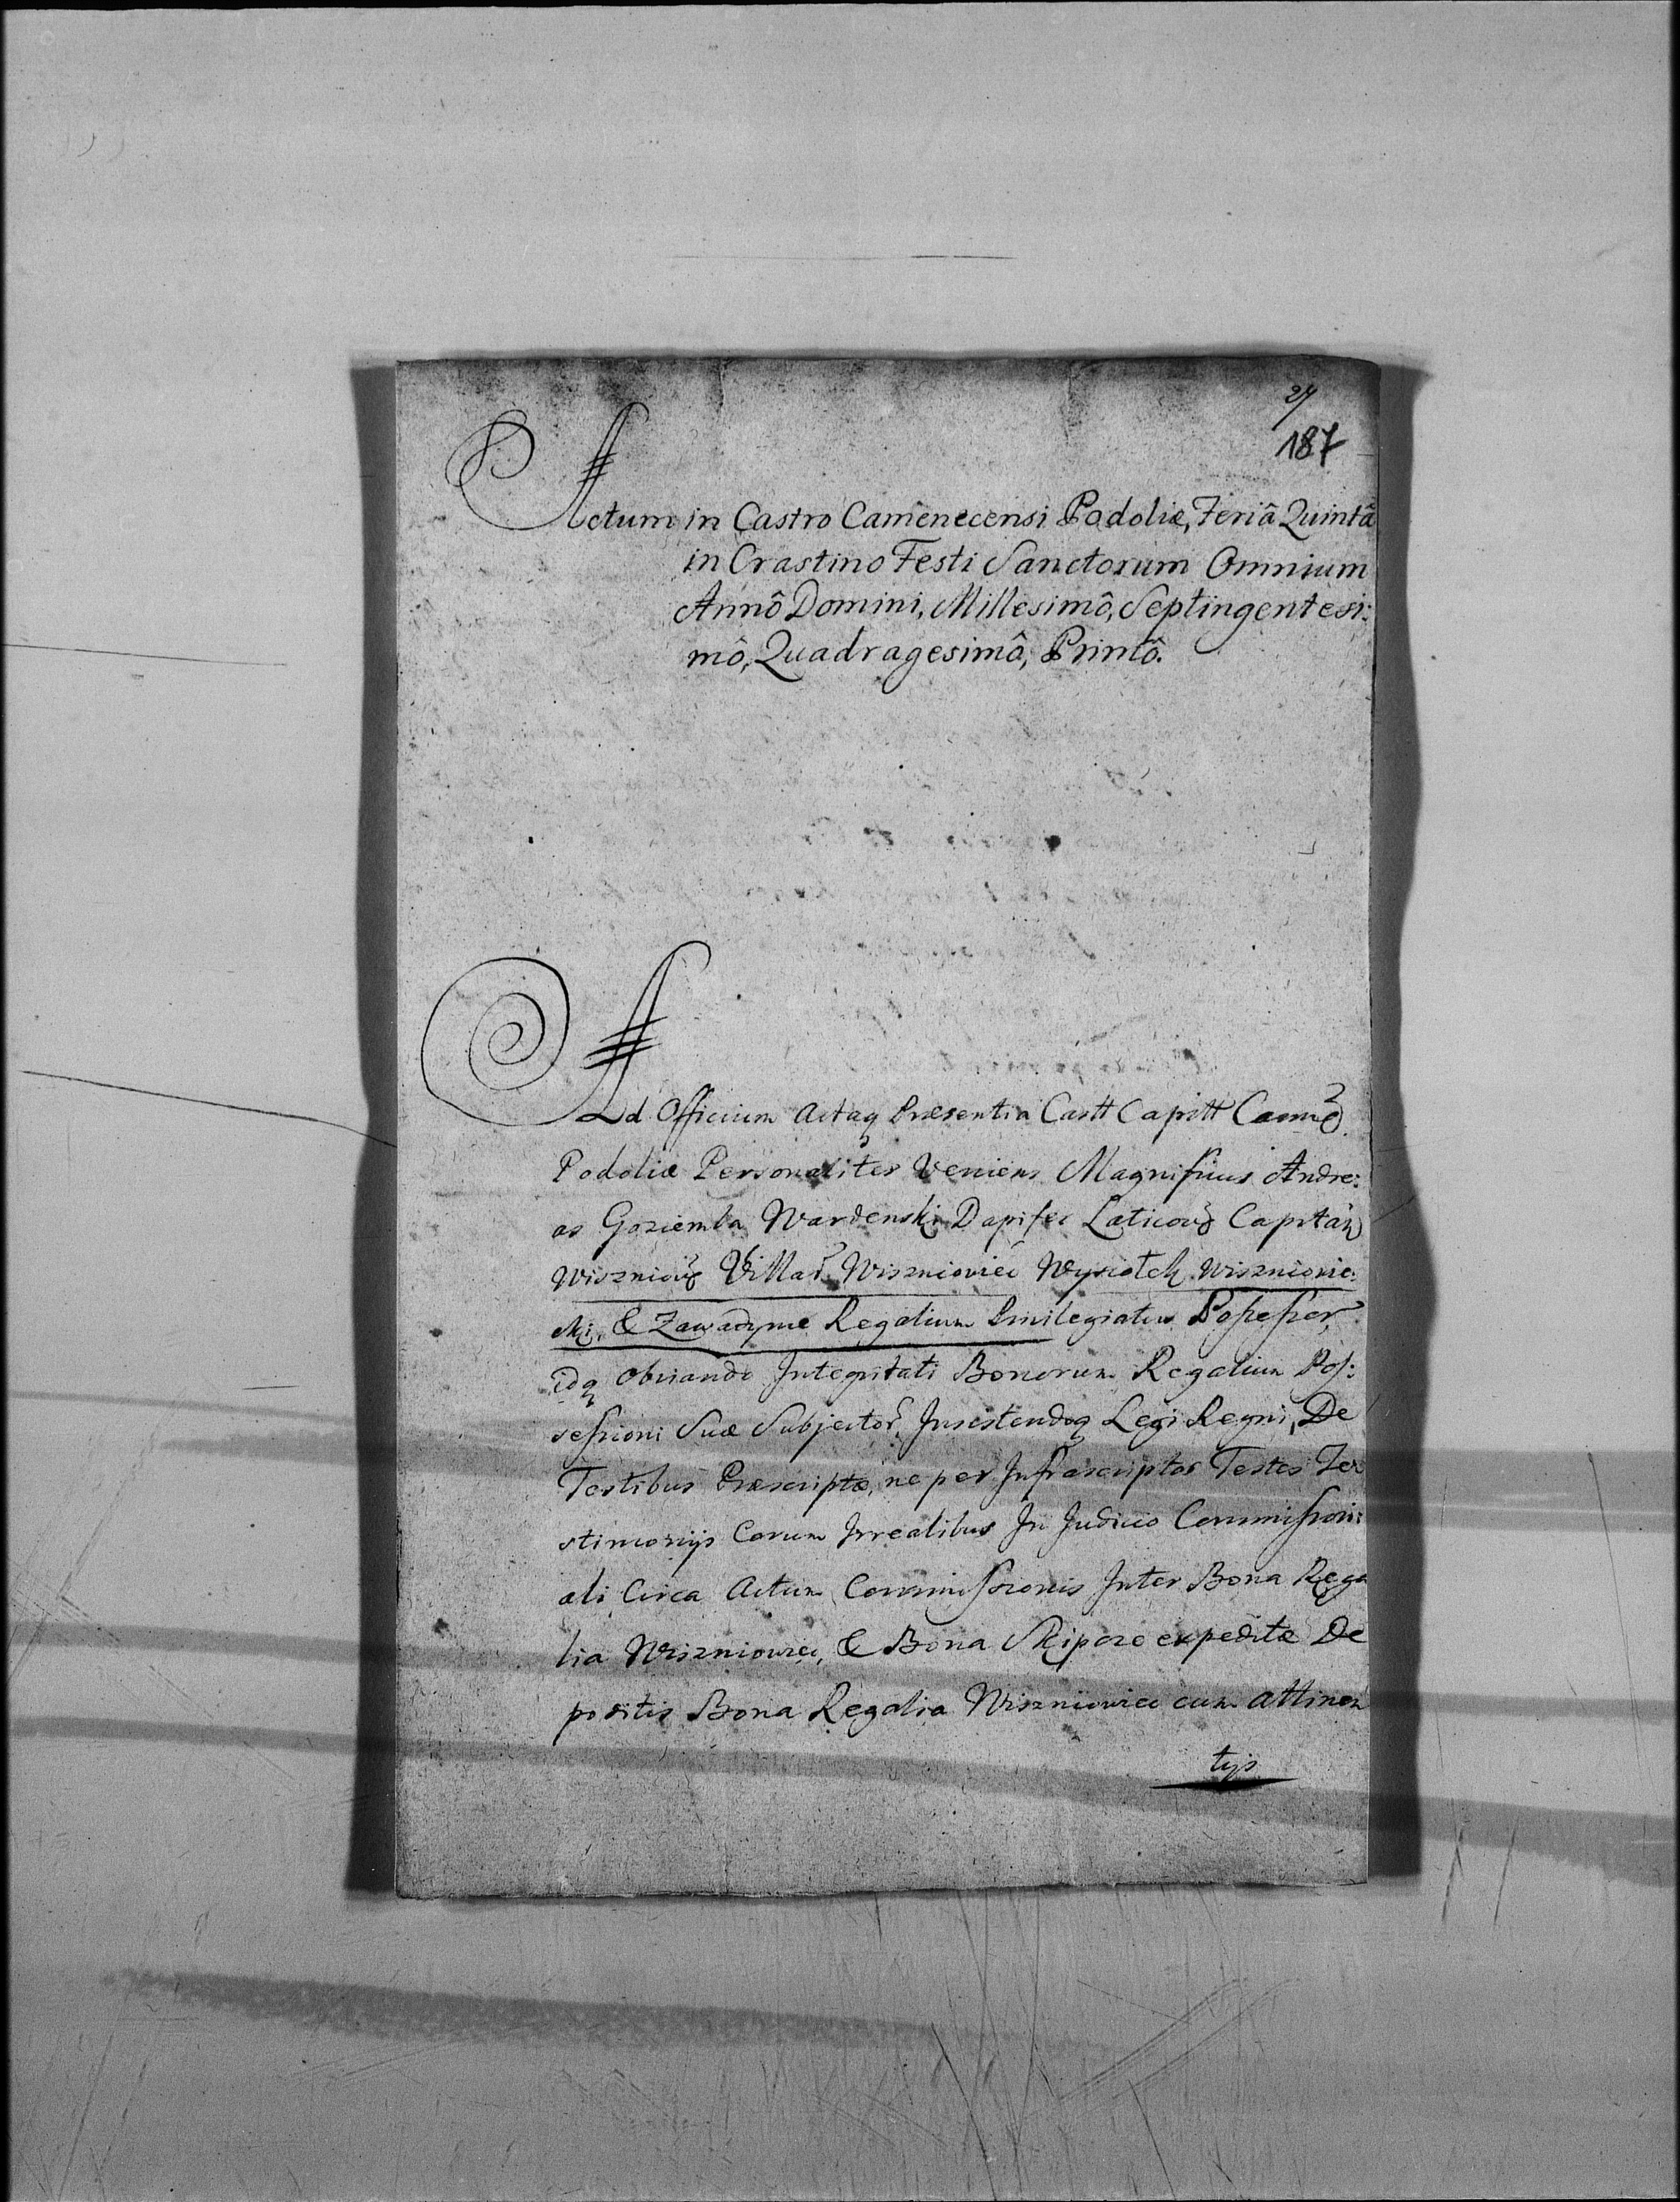 27
187
Actum in Castro Camenecensi Podoliæ, Feriâ Quintâ
in Crastino Festi Sanctorum Omnium
Annô Domini, Millesimô, Septingentesi:
mô, Quadragesimô, Primô.
Ad Officium Actaq Præsentia Castt Capitt Camē
Podoliæ Personaliter Veniens Magnificus Andre:
as Goziemba Wardenski Dapifer Laticov Capitan
Wiszniov Villar Wiszniowiec Wysiołek Wiszniowie:
cki, & Zawadyńce Regalium Privilegiatus Poſseſsor,
idq obviando Integritati Bonorum Regalium Poſ:
seſsioni Suæ Subjector, Insistendoq Legi Regni, De
Testibus Præscriptæ, ne per Infrascriptos Testes Te
stimonijs Eorum Irrealibus In Judicio Commiſsori:
ali Circa Actum Commiſsionis Inter Bona Rega
lia Wiszniowiec, & Bona Skipcze expeditæ De
positis Bona Regalia Wiszniowiec cum attinen
tijs